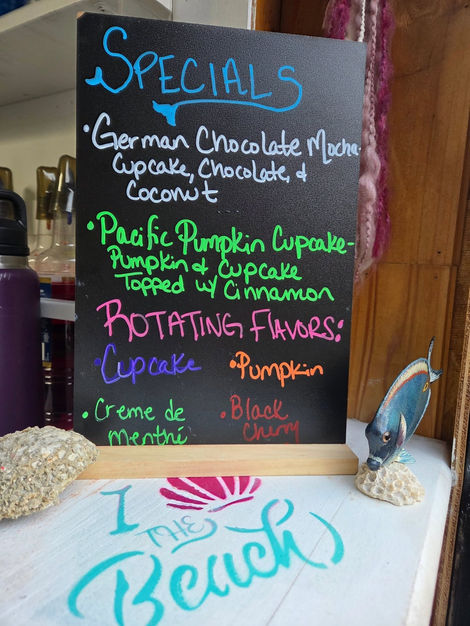 SPECIALS
• German Chocolate Mocha-
Cupcake, Chocolate, &
Coconut
• Pacific Pumpkin Cupcake-
Pumpkin & Cupcake
Topped w/ Cinnamon
ROTATING FLAVORS:
• Cupcake • Pumpkin
• Creme de menthe
• Black Cherry
I
THE
Beach